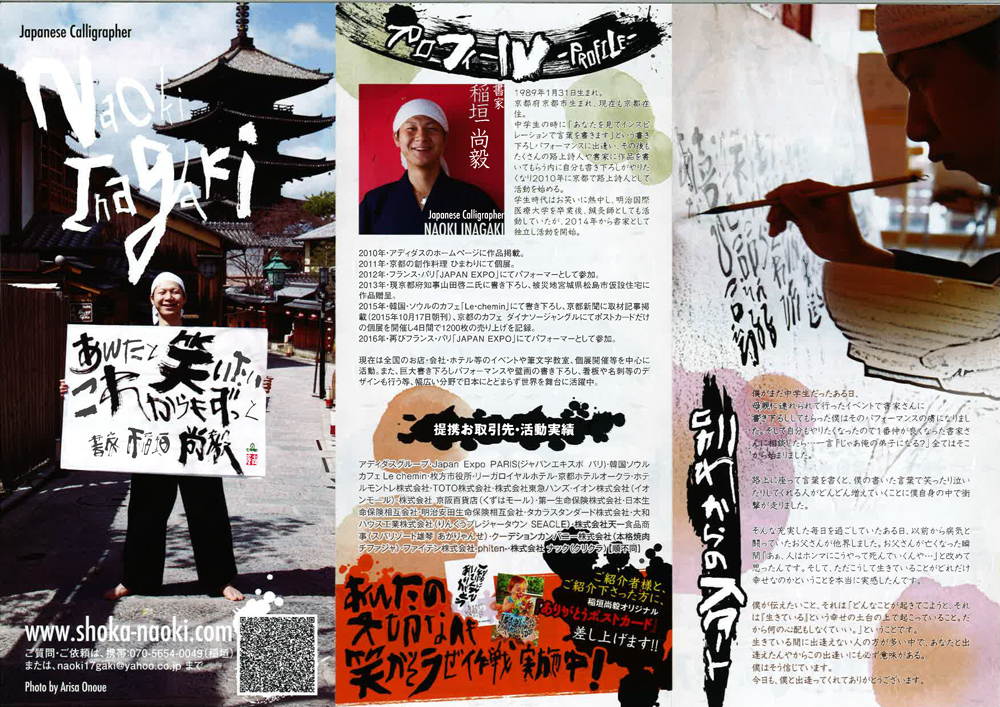 Japanese Calligrapher
Naoki
Inagaki
あんたと笑いたい
これからもずっと
書家 稲垣 尚毅
www.shoka-naoki.com
ご質問・ご依頼は、携帯:070-5654-0049(稲垣)
または、naoki17gaki@yahoo.co.jp まで
Photo by Arisa Onoue
プロフィール -PROFILE-
書家
稲垣 尚毅
Japanese Calligrapher
NAOKI INAGAKI
1989年1月31日生まれ。
京都府京都市生まれ、現在も京都在
住。
中学生の時に「あなたを見てインスピ
レーションで言葉を書きます」という書き
下ろしパフォーマンスに出逢い、その後も
たくさんの路上詩人や書家に作品を書
いてもらう内に自分も書き下ろしがやりた
くなり2010年に京都で路上詩人として
活動を始める。
学生時代はお笑いに熱中し、明治国際
医療大学を卒業後、鍼灸師としても活
動していたが、2014年から書家として
独立し活動を開始。
2010年・アディダスのホームページに作品掲載。
2011年・京都の創作料理 ひまわりにて個展。
2012年・フランス・パリ「JAPAN EXPO」にてパフォーマーとして参加。
2013年・現京都府知事山田啓二氏に書き下ろし、被災地宮城県松島市仮設住宅に
作品贈呈。
2015年・韓国・ソウルのカフェ「Le・chemin」にて書き下ろし、京都新聞に取材記事掲
載(2015年10月17日朝刊)、京都のカフェ ダイナソージャングルにてポストカードだけ
の個展を開催し4日間で1200枚の売り上げを記録。
2016年・再びフランス・パリ「JAPAN EXPO」にてパフォーマーとして参加。
現在は全国のお店・会社・ホテル等のイベントや筆文字教室、個展開催等を中心に
活動。また、巨大書き下ろしパフォーマンスや壁画の書き下ろし、看板や名刺等のデ
ザインも行う等、幅広い分野で日本にとどまらず世界を舞台に活躍中。
提携お取引先・活動実績
アディダスグループ・Japan Expo PARIS(ジャパンエキスポ パリ)・韓国ソウル
カフェ Le chemin・枚方市役所・リーガロイヤルホテル・京都ホテルオークラ・ホテ
ルモントレ株式会社・TOTO株式会社・株式会社東急ハンズ・イオン株式会社(イオ
ンモール)・株式会社 京阪百貨店(くずはモール)・第一生命保険株式会社・日本生
命保険相互会社・明治安田生命保険相互会社・タカラスタンダード株式会社・大和
ハウス工業株式会社(りんくうプレジャータウン SEACLE)・株式会社天一食品商
事(スパリゾート雄琴 あがりゃんせ)・クーデションカンパニー株式会社(本格焼肉
チファジャ)・ファイテン株式会社-phiten-・株式会社ナック(クリクラ) 【順不同】
あんたの
大切な人も
笑かそうぜ作戦 実施中!
ご紹介者様と、
ご紹介下さった方に、
稲垣尚毅オリジナル
「ありがとうポストカード」
差し上げます!!
僕がまだ中学生だったある日、
母親に連れられて行ったイベントで書家さんに
書き下ろししてもらった僕はそのパフォーマンスの虜になりまし
た。そして自分もやりたくなったので1番仲が良くなった書家さ
んに相談したら…一言『じゃあ俺の弟子になる?』全てはそこ
から始まりました。
路上に座って言葉を書くと、僕の書いた言葉で笑ったり泣い
たりしてくれる人がどんどん増えていくことに僕自身の中で衝
撃が走りました。
そんな充実した毎日を過ごしていたある日、以前から病気と
闘っていたお父さんが他界しました。お父さんが亡くなった瞬
間『あぁ、人はホンマにこうやって死んでいくんや…』と改めて
思ったんです。そして、ただこうして生きていることがどれだけ
幸せなのかということを本当に実感したんです。
僕が伝えたいこと、それは『どんなことが起きてこようと、それ
は『生きている』という幸せの土台の上で起こっていること。だ
から何の心配もしなくていい。』ということです。
生きている間に出逢えない人の方が多い中で、あなたと出
逢えたんやからこの出逢いにも必ず意味がある。
僕はそう信じています。
今日も、僕と出逢ってくれてありがとうございます。